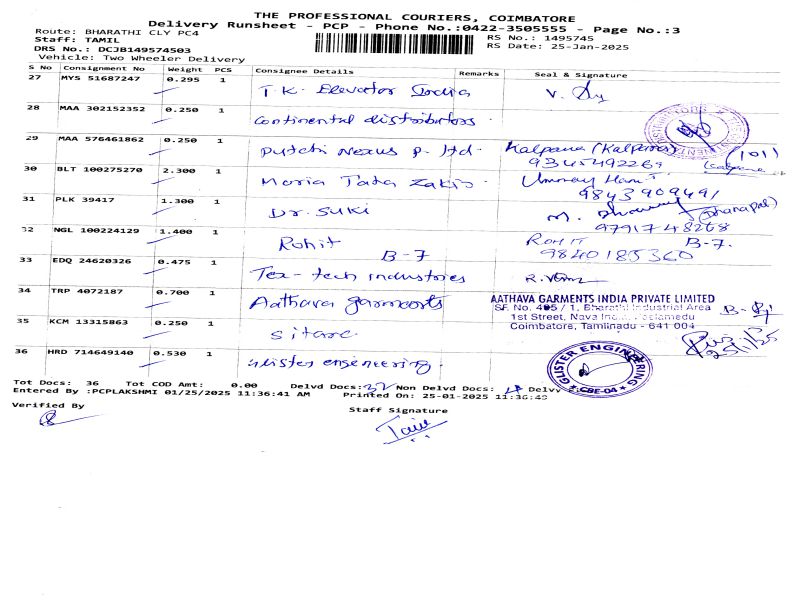 THE PROFESSIONAL COURIERS, COIMBATORE
Delivery Runsheet - PCP - Phone No.:0422-3505555 - Page No.:3
Route: BHARATHI CLY PC4 RS No.: 1495745
Staff: TAMIL RS Date: 25-Jan-2025
DRS No.: DCJB149574503
Vehicle: Two Wheeler Delivery
S No Consignment No Weight PCS Consignee Details Remarks Seal & Signature
27 MYS 51687247 0.295 1 T.K. Elevator India
28 MAA 302152352 0.250 1 Continental distributors.
29 MAA 576461862 0.250 1 Nexus P. ltd. Kalpana (Kalpana) (101)
9345492269
30 BLT 100275270 2.300 1 Maria Tata Zakis.
9843909491
31 PLK 39417 1.300 1 Dr. Suki M. (Dhanapal)
9791748268
32 NGL 100224129 1.400 1 Rohit B-7 ROHIT B-7.
9840185360
33 EDQ 24620326 0.475 1 Tex-tech industries
34 TRP 4072187 0.700 1 Aathava garments
AATHAVA GARMENTS INDIA PRIVATE LIMITED
SF. No. 405 / 1, Bharathi Industrial Area
1st Street, Nava India, Peelamedu
Coimbatore, Tamilnadu - 641 004
35 KCM 13315863 0.250 1 25/1/25
36 HRD 714649140 0.530 1 Glister engineering.
GLISTER ENGINEERING
CBE-04
Tot Docs: 36 Tot COD Amt: 0.00 Delvd Docs: 32 Non Delvd Docs:
Entered By :PCPLAKSHMI 01/25/2025 11:36:41 AM Printed On: 25-01-2025 11:36:43
Verified By Staff Signature